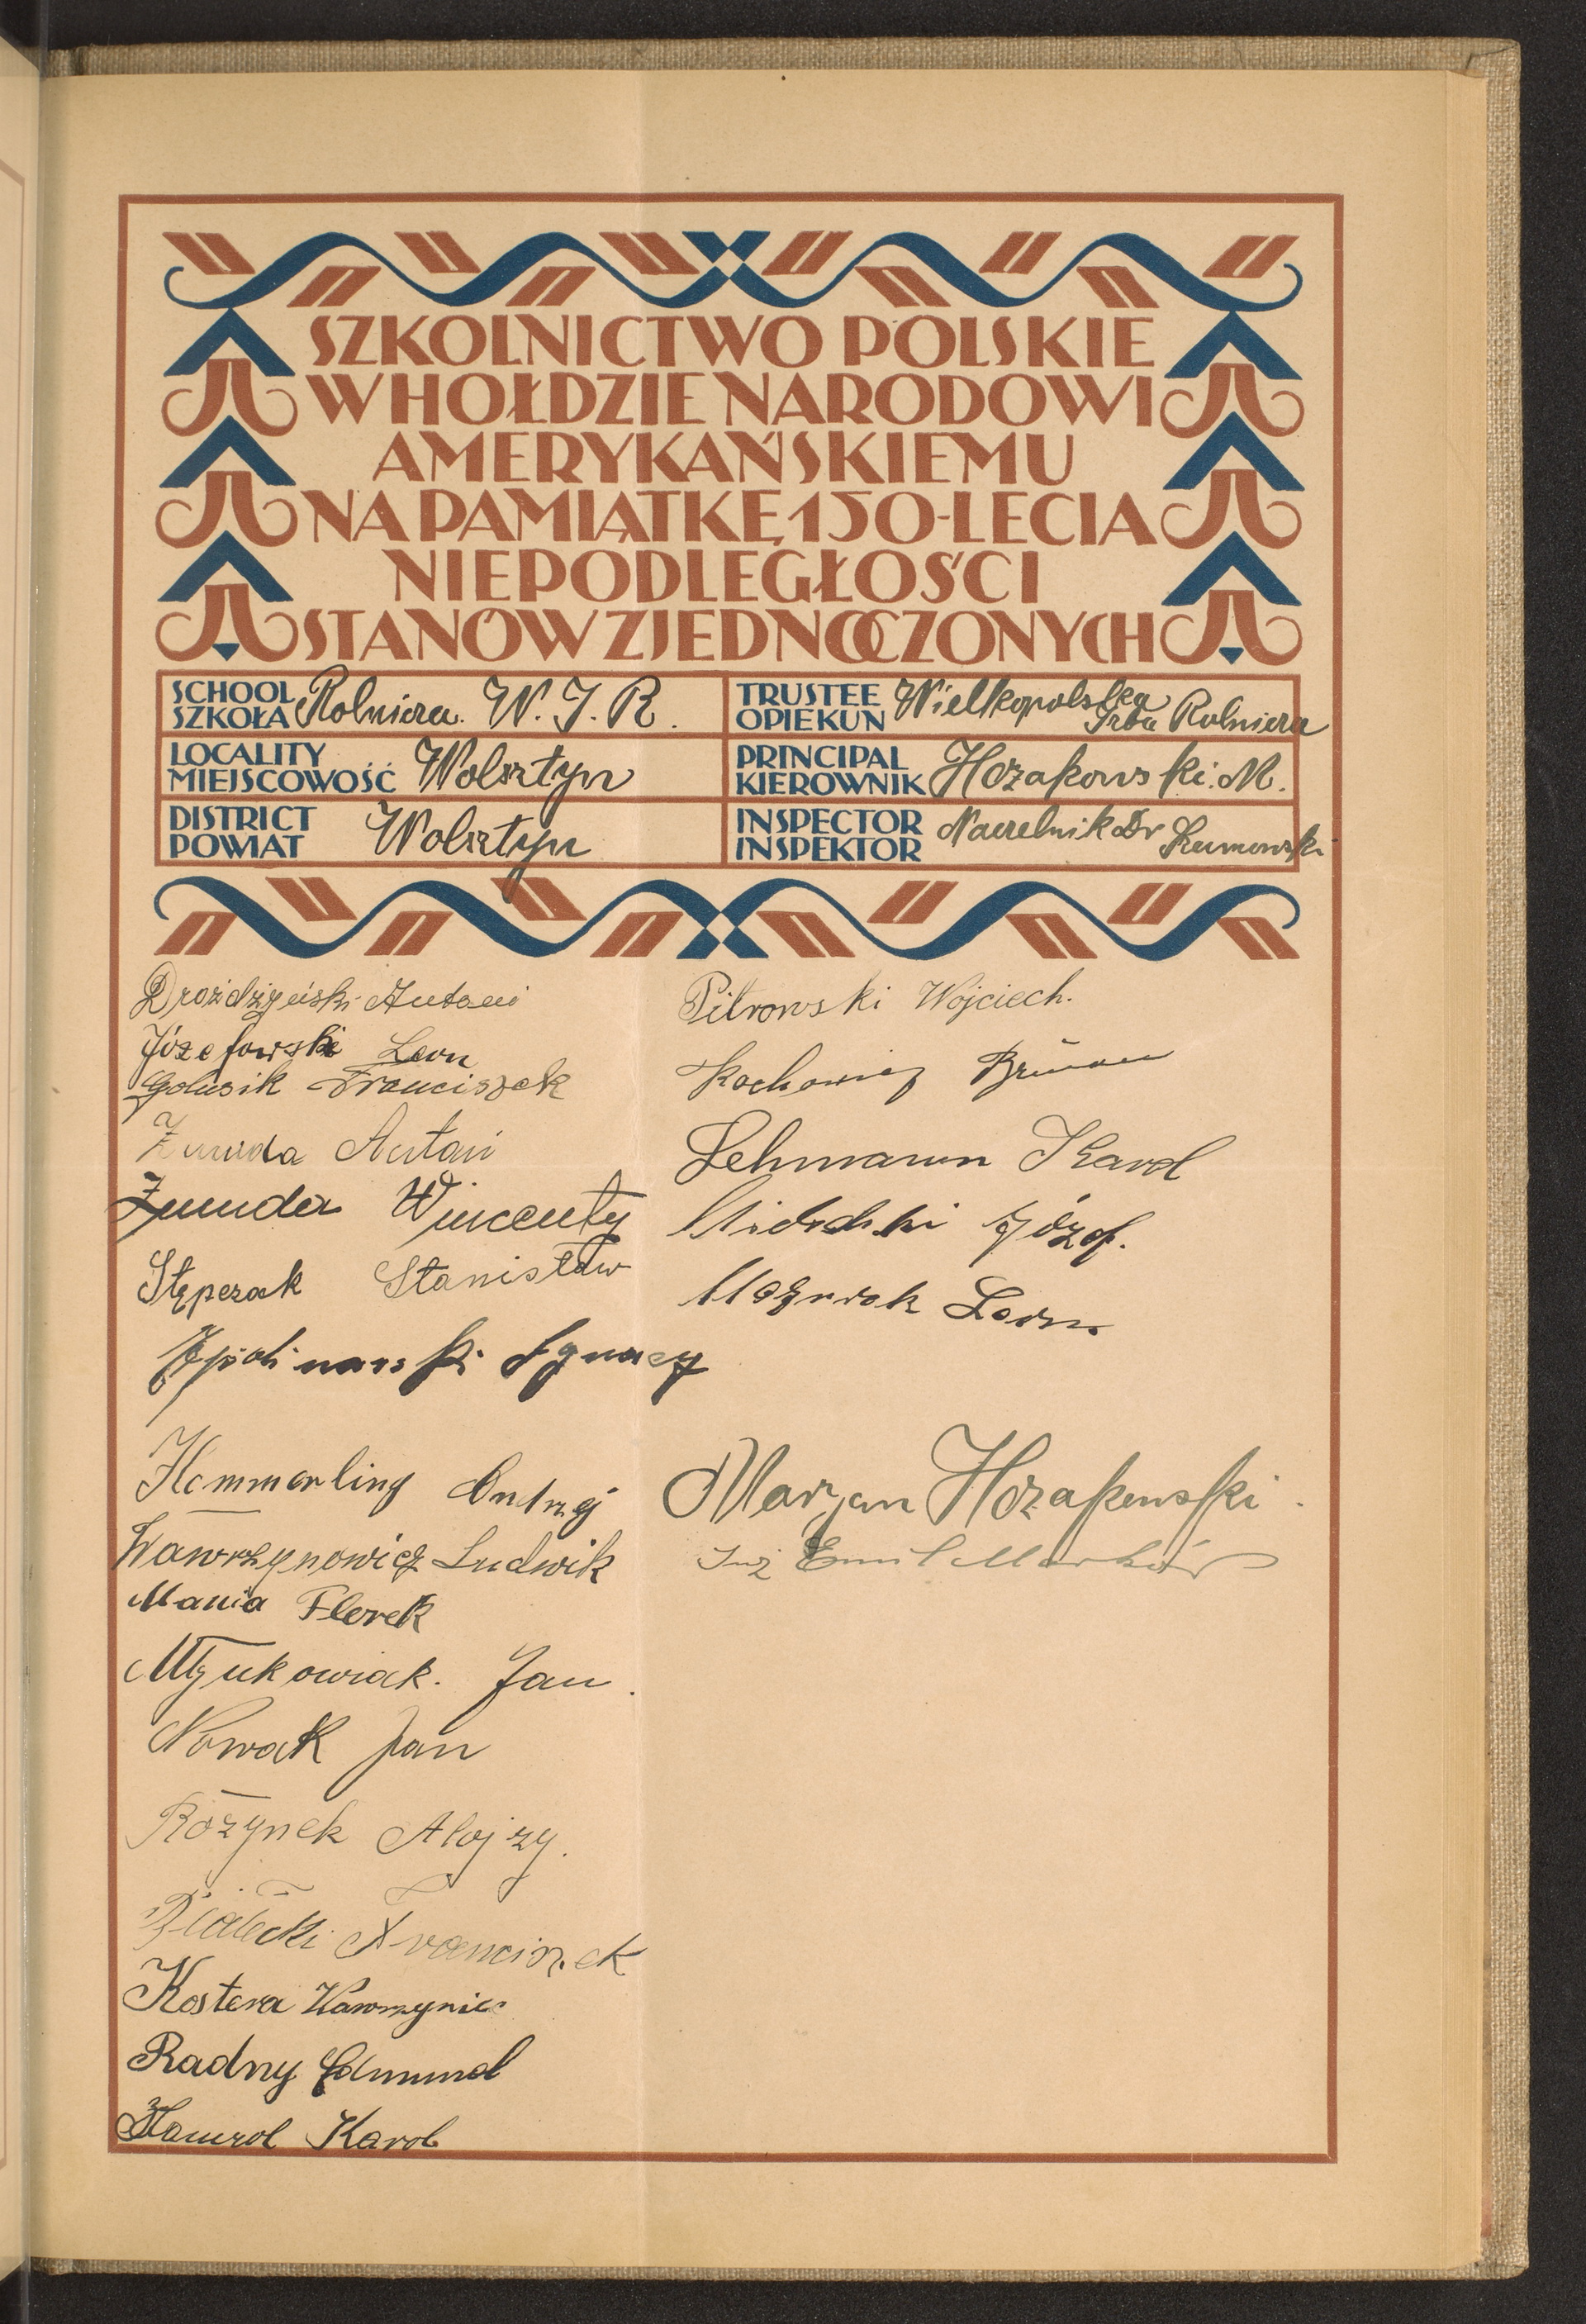 SZKOLNICTWO POLSKIE
W HOŁDZIE NARODOWI
AMERYKAŃSKIEMU
NA PAMIĄTKĘ 150-LECIA
NIEPODLEGŁOŚCI
STANÓW ZJEDNOCZONYCH
SCHOOL
SZKOŁA Rolnicza. W. I. R.
TRUSTEE
OPIEKUN Wielkopolska Izba Rolnicza
LOCALITY
MIEJSCOWOŚĆ Wolsztyn
PRINCIPAL
KIEROWNIK Hozakowski. M.
DISTRICT
POWIAT Wolsztyn
INSPECTOR
INSPEKTOR Naczelnik Dr Szumowski
Drożdżyński Antoni
Józefowski Leon
Golusik Franciszek
Żmuda Antoni
Żmuda Wincenty
Stępczak Stanisław
Apolinarski Ignacy
Hemmerling Andrzej
Wawrzynowicz Ludwik
Mania Florek
Jan
Nowak Jan
Rożynek Alojzy.
Białecki Franciszek
Kostera Wawrzyniec
Radny Edmund
Karol
Pitrowski Wojciech.
Kochowicz
Lehmann Karol
Józef.
Leon
Marjan Hozakowski.
Inż Emil